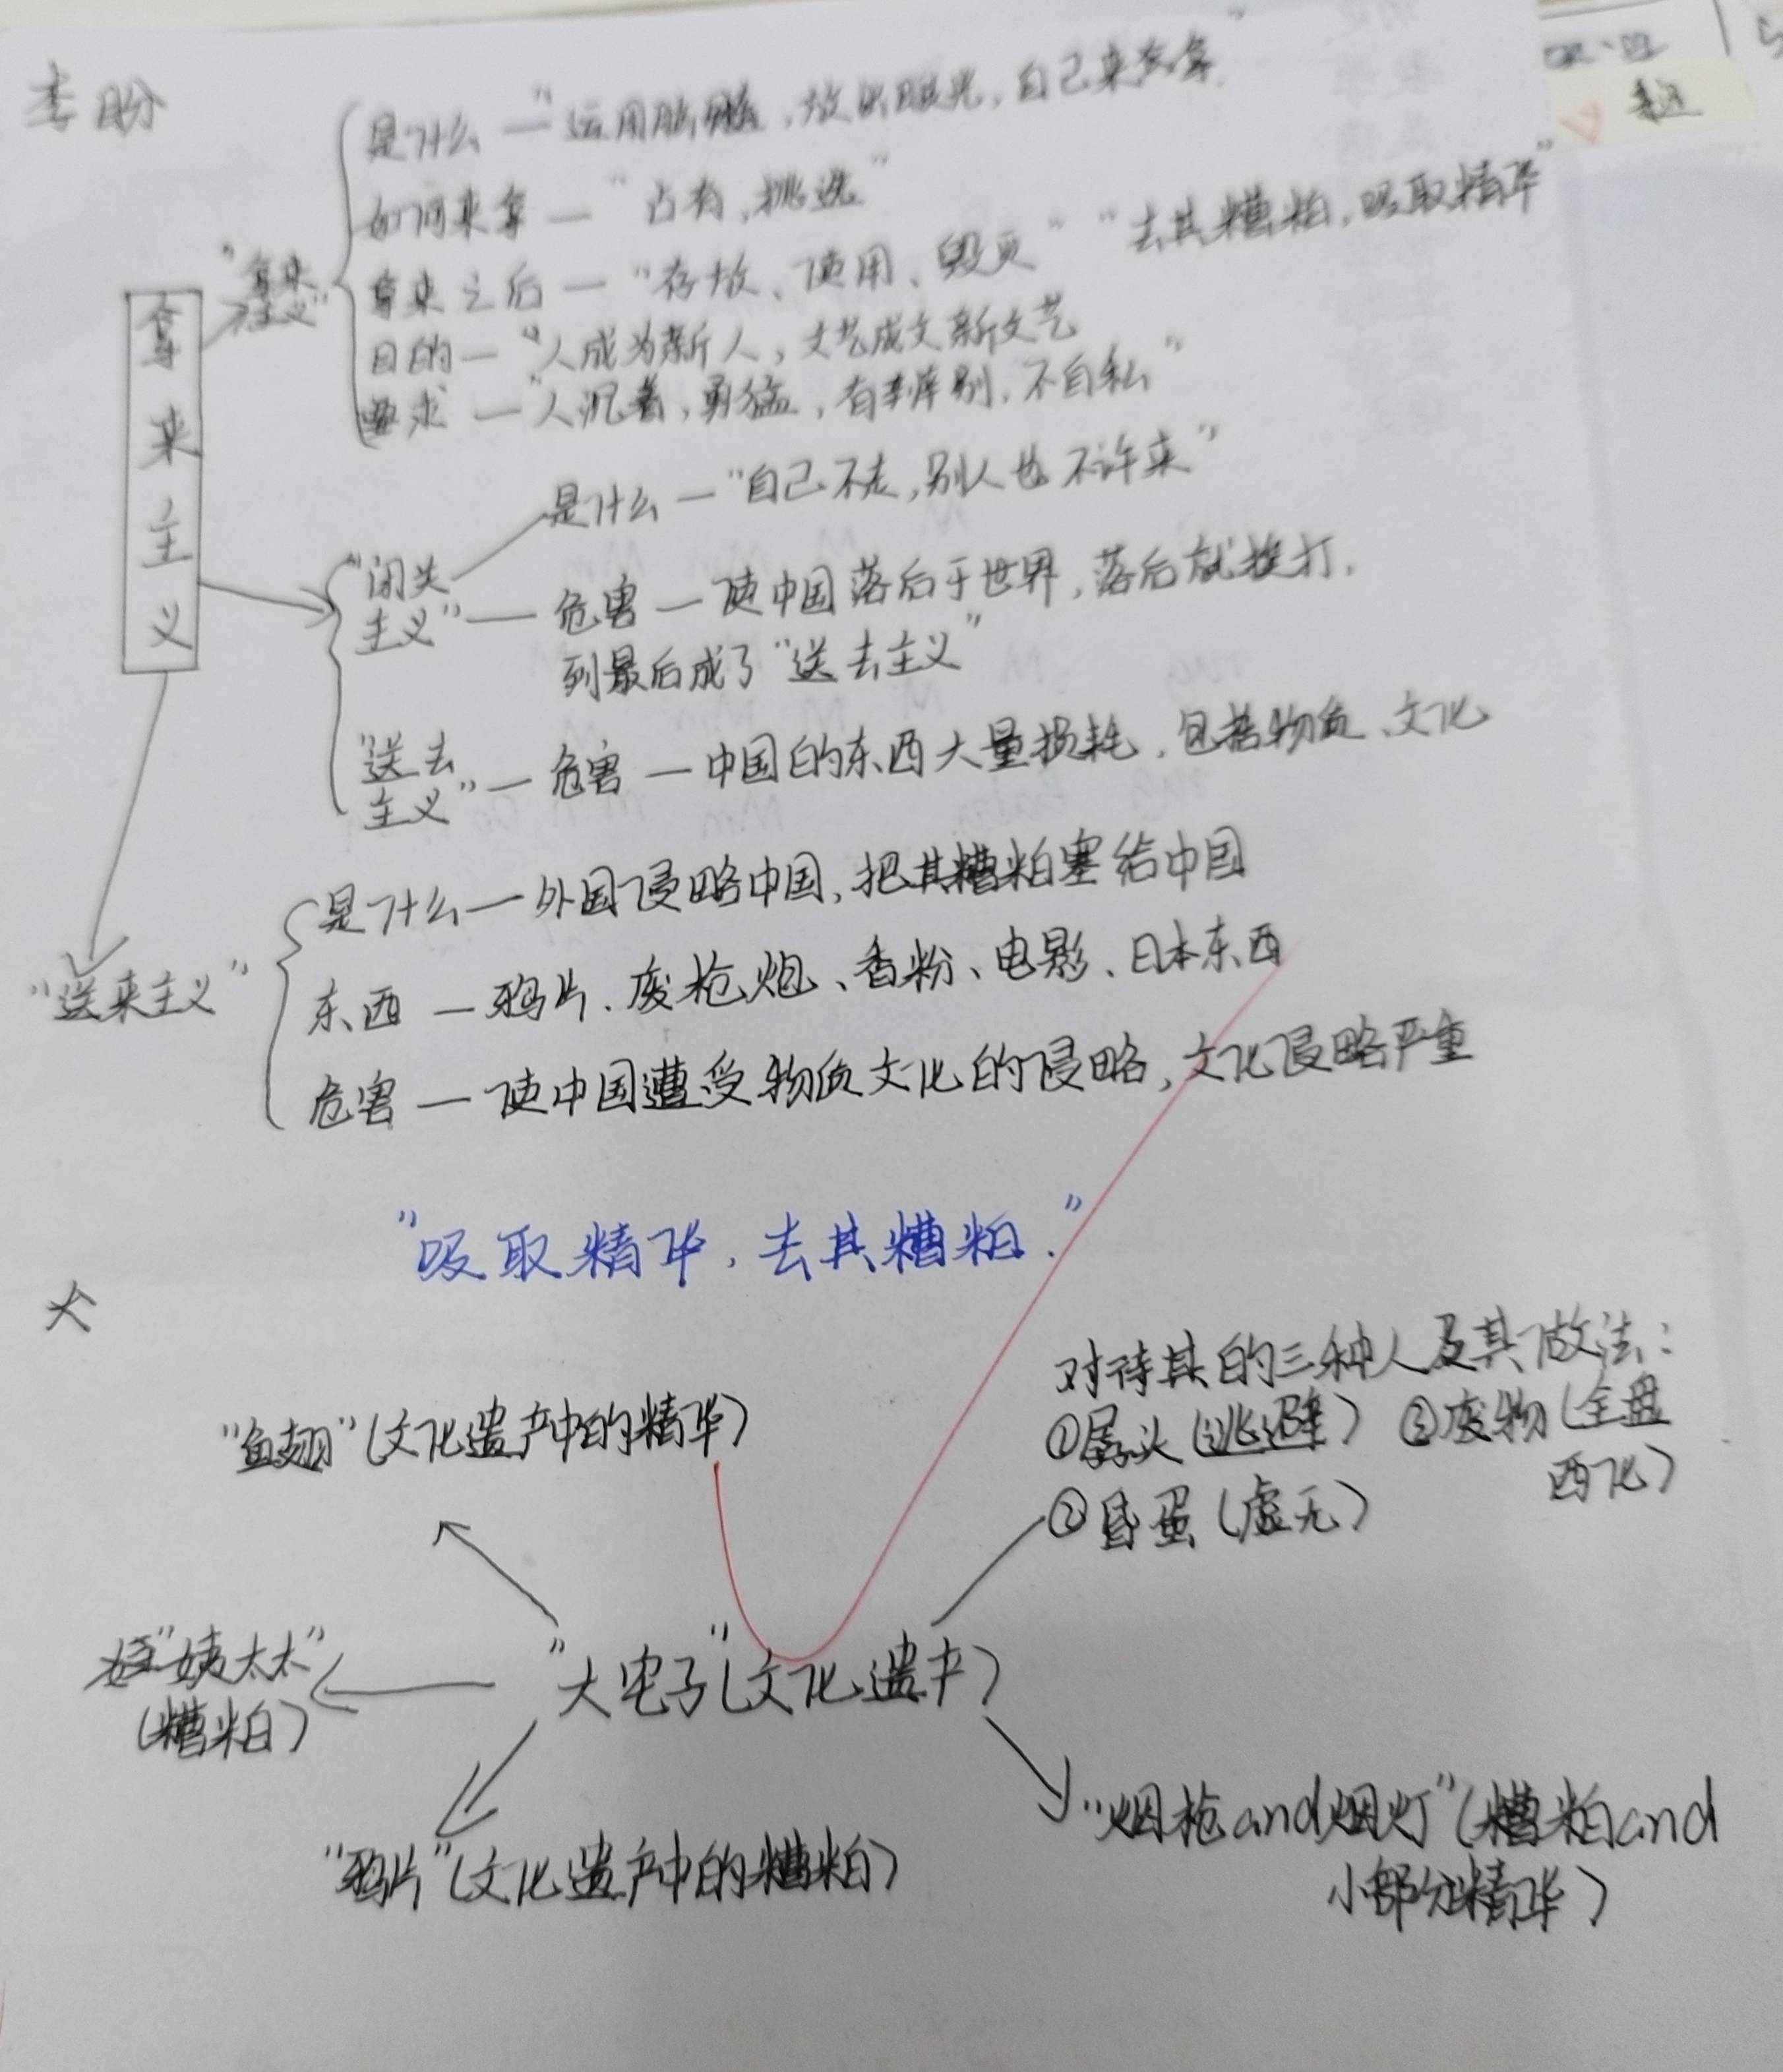 李盼
是什么—"运用脑髓,放出眼光,自己来拿"
如何来拿—"占有,挑选"
"拿来主义"
拿来之后—"存放、使用、毁灭""去其糟粕,吸取精华"
目的—"人成为新人,文艺成文新文艺
要求—"人沉着,勇猛,有辨别,不自私"
拿来主义
是什么—"自己不去,别人也不许来"
"闭关主义"—危害—使中国落后于世界,落后就挨打.
到最后成了"送去主义"
"送去主义"—危害—中国的东西大量损耗,包括物质、文化
是什么—外国侵略中国,把其糟粕塞给中国
"送来主义"
东西—鸦片、废枪炮、香粉、电影、日本东西
危害—使中国遭受物质文化的侵略,文化侵略严重
"吸取精华,去其糟粕."
大
对待其的三种人及其做法:
"鱼翅"(文化遗产中的精华)
①孱头(逃避) ③废物(全盘西化)
②昏蛋(虚无)
"姨太太"
(糟粕)
"大宅子"(文化遗产)
"烟枪and烟灯"(糟粕and
小部分精华)
"鸦片"(文化遗产中的糟粕)